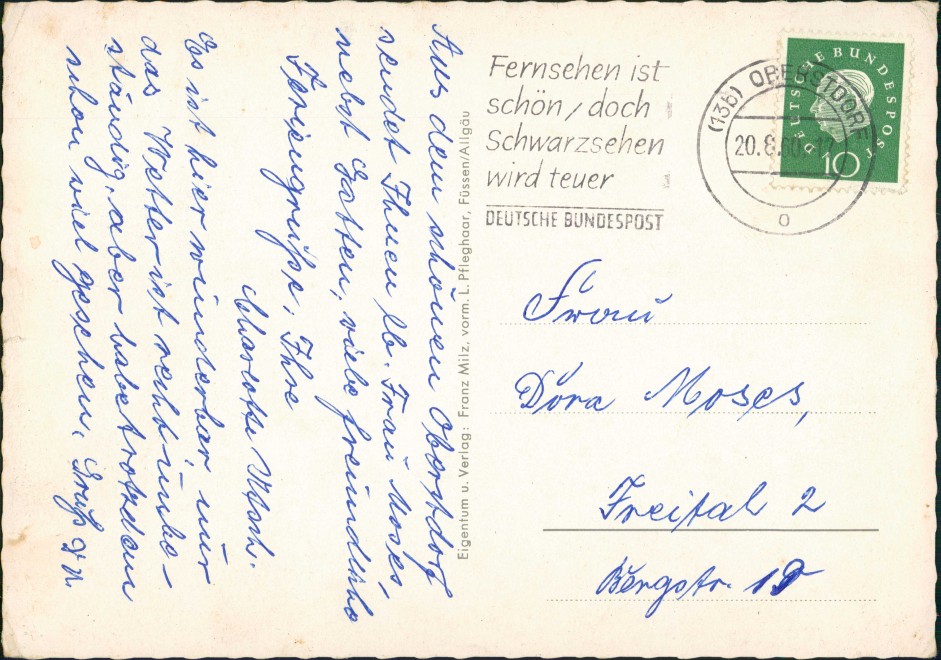 Aus dem schönen Oberstdorf
sendet Ihnen lb. Frau Moses,
nebst Gatten, viele freundliche
Feriengrüße, Ihre
Charlotte
Es ist hier wunderbar, nur
das Wetter ist recht unbe-
ständig, aber habe trotzdem
schon viel gesehen. Gruß
Eigentum u. Verlag: Franz Milz, vorm. L. Pfleghaar, Füssen/Allgäu
Fernsehen ist
schön / doch
Schwarzsehen
wird teuer
DEUTSCHE BUNDESPOST
(13b) OBERSTDORF
20.8.60.-17
o
DEUTSCHE BUNDESPOST
10
Frau
Dora Moses,
Freital 2
Bergstr. 19